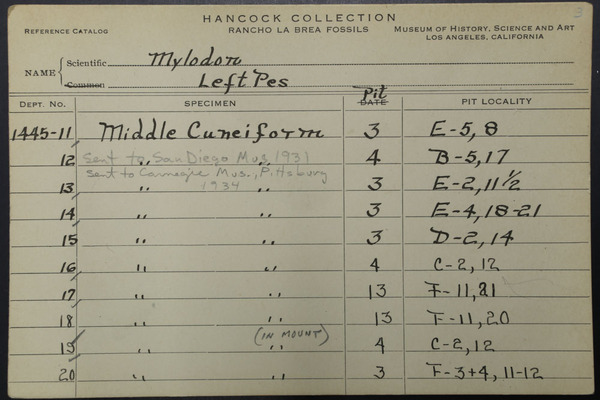 3
HANCOCK COLLECTION
REFERENCE CATALOG RANCHO LA BREA FOSSILS MUSEUM OF HISTORY, SCIENCE AND ART
LOS ANGELES, CALIFORNIA
NAME { Scientific Mylodon
Common Left Pes
DEPT. NO. SPECIMEN Pit DATE PIT LOCALITY
1445-11 Middle Cuneiform 3 E-5, 8
12 " " 4 B-5, 17
Sent to San Diego Mus, 1931
Sent to Carnegie Mus., Pittsburg
13 " " 3 E-2, 11 1/2
1934
14 " " 3 E-4, 18-21
15 " " 3 D-2, 14
16 " " 4 C-2, 12
17 " " 13 F-11, 21
18 " " 13 F-11, 20
(IN MOUNT)
19 " " 4 C-2, 12
20 " " 3 F-3+4, 11-12